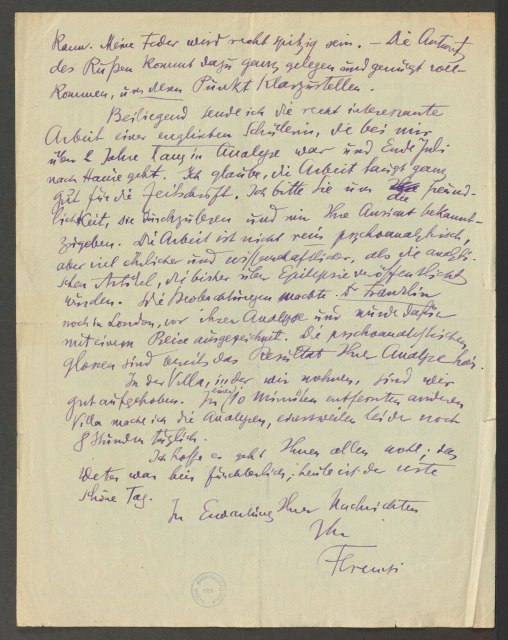 kann. Meine Feder wird recht spitzig sein. — Die Antwort
des Rußen kommt dazu ganz gelegen und genügt voll-
kommen, um den Punkt klarzustellen.
Beiliegend sende ich die recht interessante
Arbeit einer englischen Schülerin, die bei mir
über 2 Jahre lang in Analyse war und Ende Juli
nach Hause geht. Ich glaube, die Arbeit taugt ganz
gut für die Zeitschrift. Ich bitte Sie um die freund-
lichkeit, sie durchzulesen und mir Ihre Ansicht bekannt-
zugeben. Die Arbeit ist nicht rein psychoanalytisch,
aber viel ehrlicher und wissenschaftlicher, als die analyti-
schen Artikel, die bisher über Epilepsie veröffentlicht
wurden. Die Beobachtungen machte Dr
noch in London, vor ihrer Analyse und wurde dafür
mit einem Preise ausgezeichnet. Die psychoanalytischen
glossen sind bereits das Resultat Ihrer Analyse hier.
In der Villa, in der wir wohnen, sind wir
gut aufgehoben. In einer 10 Minuten entfernten anderen
Villa mache ich die Analysen, einstweilen leider noch
8 Stunden täglich.
Ich hoffe es geht Ihnen allen wohl; das
Wetter war hier fürchterlich; heute ist der erste
schöne Tag.
In Erwartung Ihrer Nachrichten
Ihr
Ferenczi